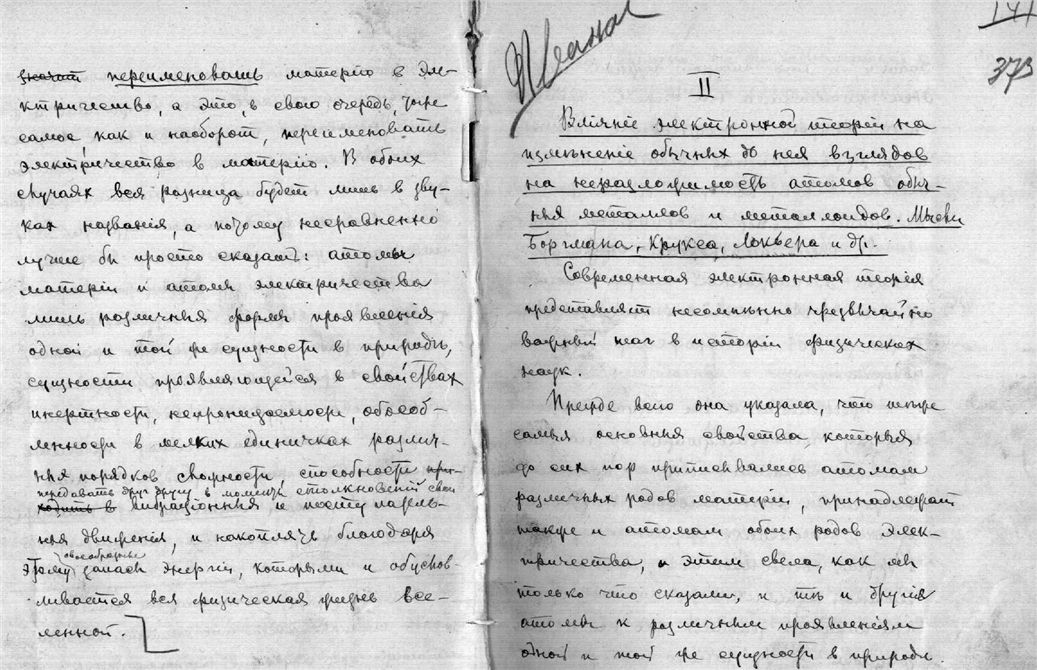 значит переименовать матерію в эле-
ктричество, а это, в свою очередь, тоже
самое как и наоборот, переименовать
электричество в матерію. В обоих
случаях вся разница будет лишь в зву-
ках названія, а потому несравненно
лучше бы просто сказать: атомы
матеріи и атомы электричества
лишь различныя формы проявленія
одной и той же сущности в природѣ,
сущности проявляющейся в свойствах
инертности, непроницаемости, обособ-
ленности в мелких единичках различ-
ных порядков сложности, способности при-
передавать друг другу в момент столкновеній свои
ходить в вибраціонныя и поступатель-
ныя движенія, и накоплять благодаря
своеобразные
этому запасы энергіи, которыми и обуслов-
ливается вся физическая жизнь все-
ленной.
141
373
II
Вліяніе электронной теоріи на
измѣненіе обычных до нея взглядов
на неразложимость атомов обыч-
ных металлов и металлоидов. Мысли
Боргмана, Крукса, Локьера и др.
Современная электронная теорія
представляет несомнѣнно чрезвычайно
важный шаг в исторіи физических
наук.
Прежде всего она указала, что тѣже
самыя основныя свойства, которыя
до сих пор приписывались атомам
различных родов матеріи, принадлежат
также и атомам обоих родов элек-
тричества, и этим свела, как мы
только что сказали, и тѣ и другія
атомы к различным проявленіям
одной и той же сущности в природѣ.